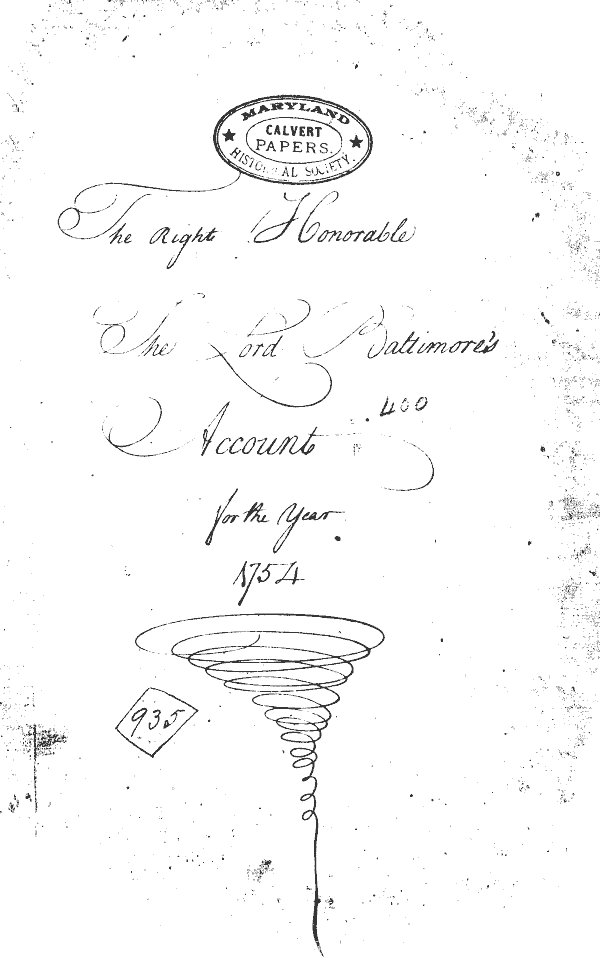 MARYLAND
CALVERT
PAPERS.
HISTORICAL SOCIETY.
The Right Honorable
The Lord Baltimore's
400
Account
for the Year
1754
935